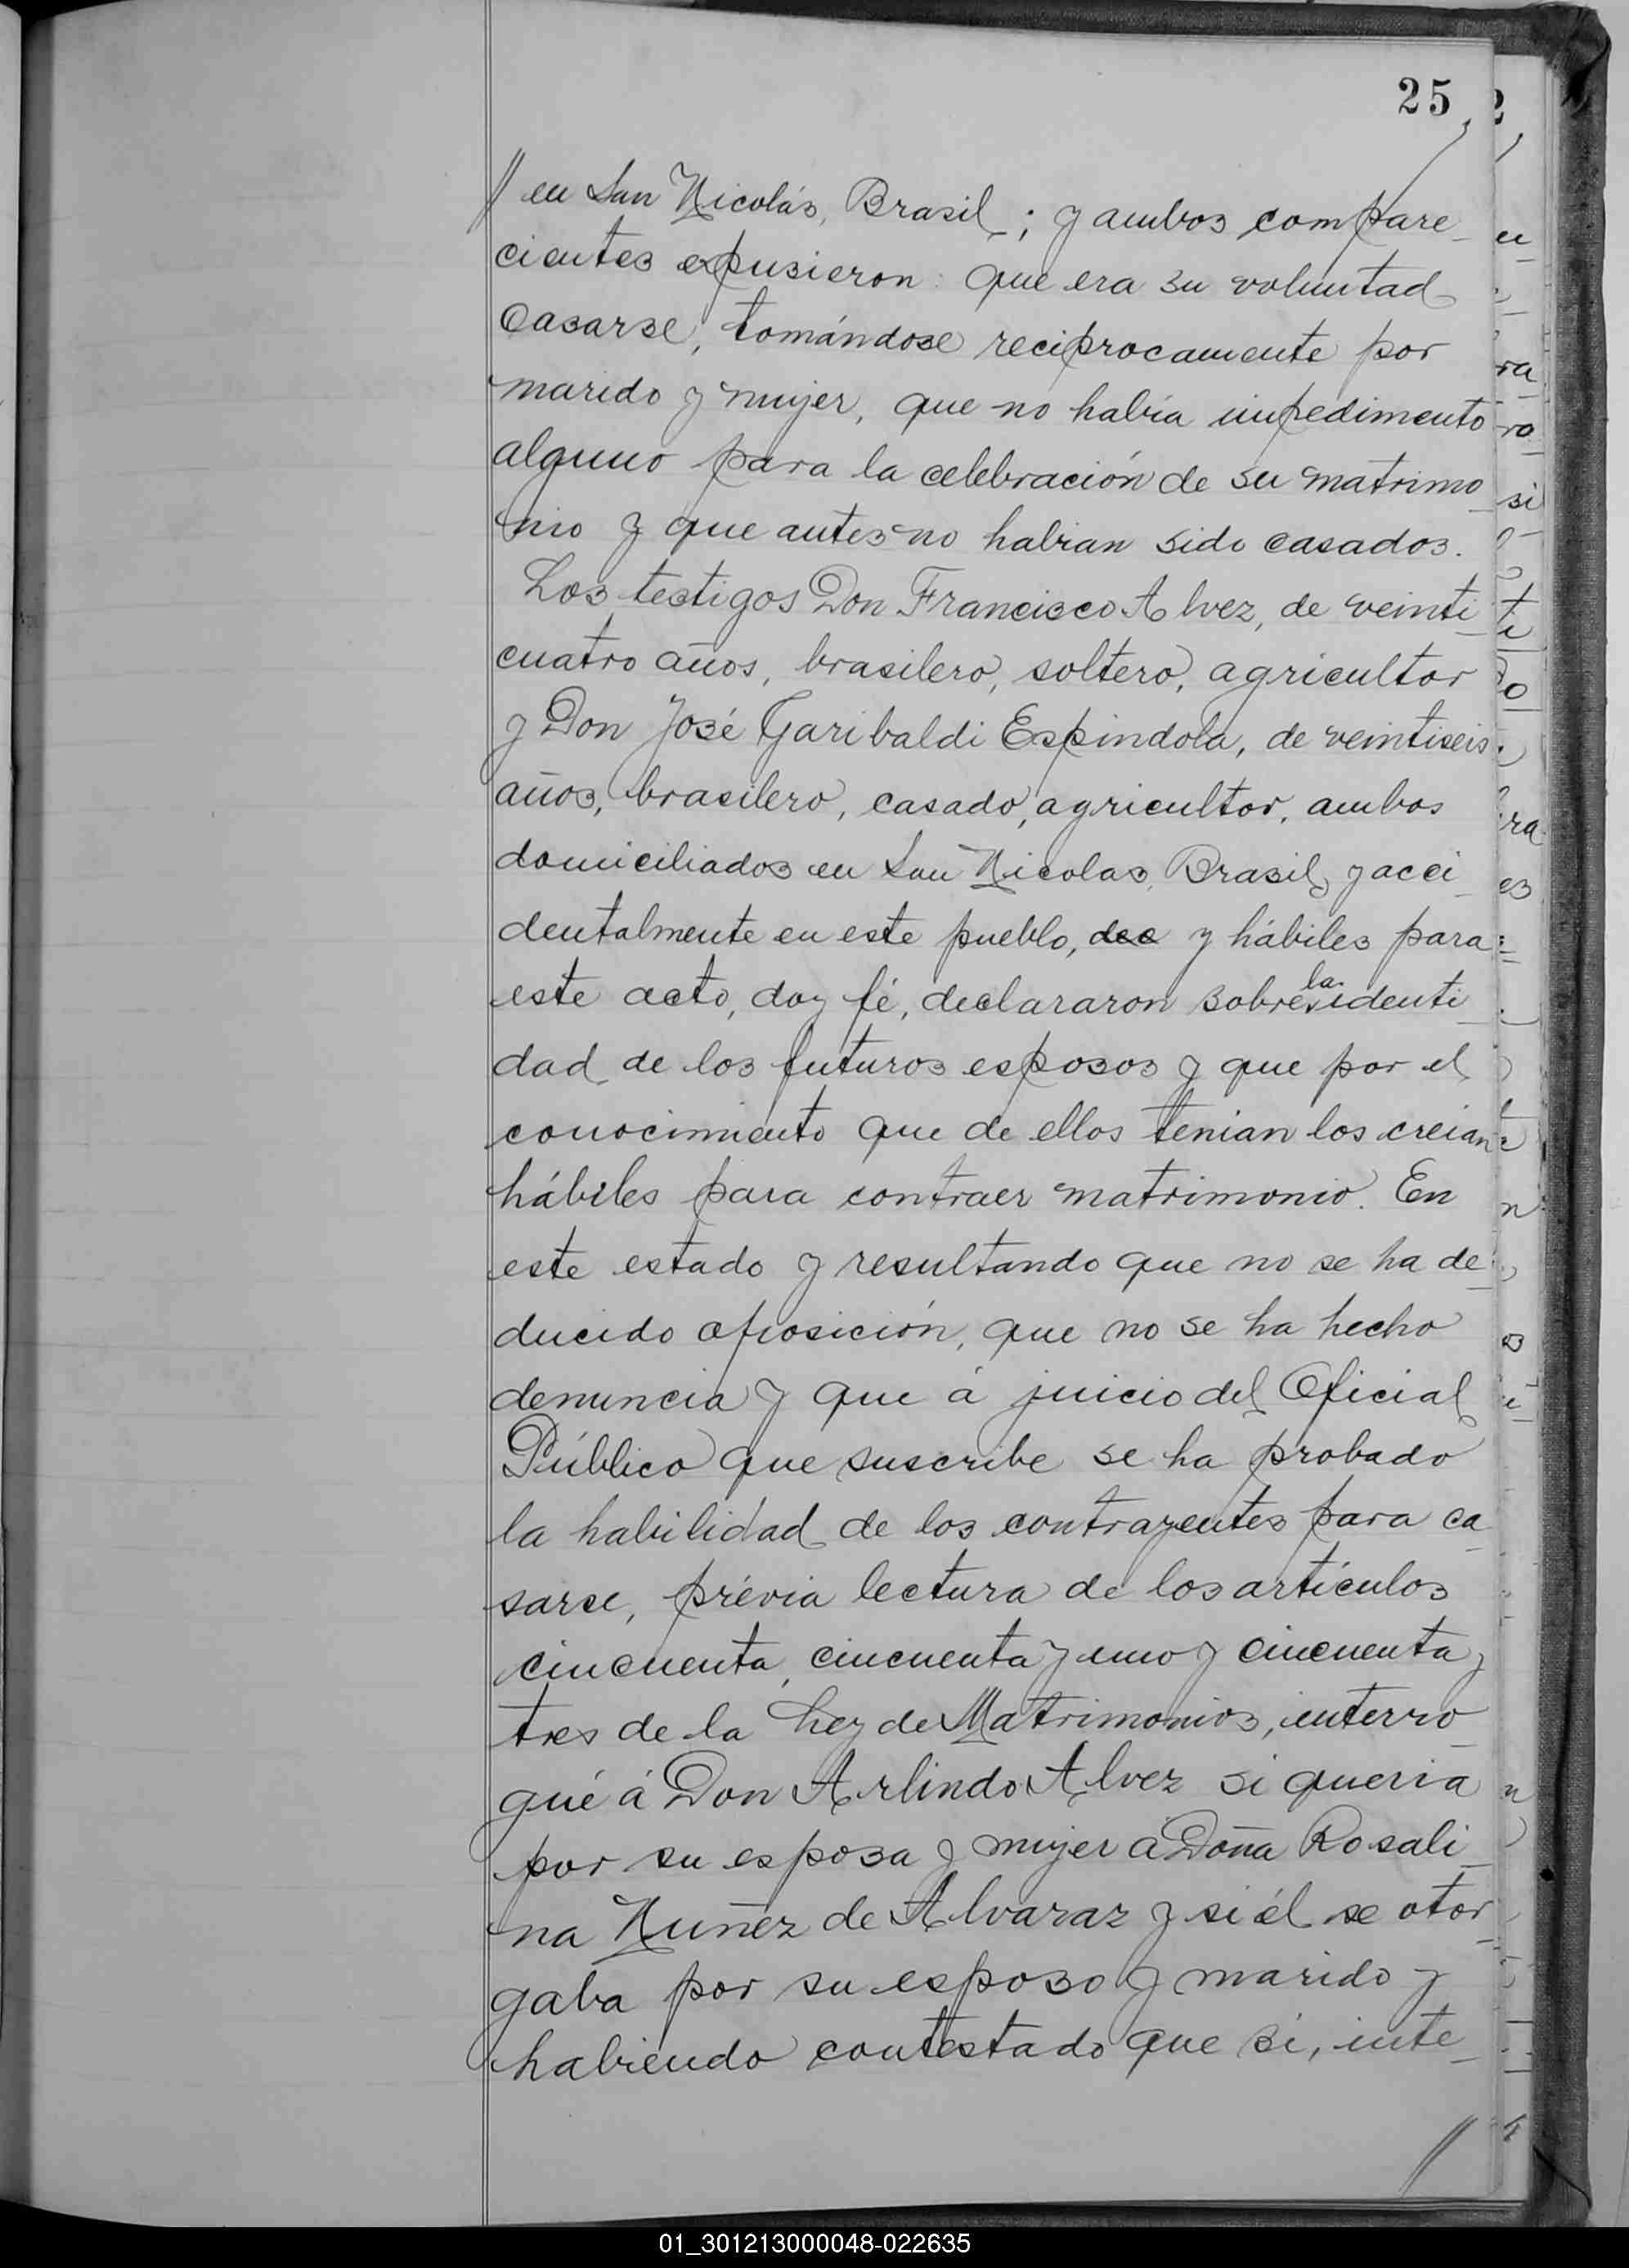 25
// en San Nicolás, Brasil; y ambos compare_
cientes expusieron: que era su voluntad
casarse, tomándose reciprocamente por
marido y mujer, que no habia impedimento
alguno para la celebración de su matrimo_
nio y que antes no habian sido casados.
Los testigos Don Francisco Alvez, de veinti_
cuatro años, brasilero, soltero, agricultor
y Don José Garibaldi Espindola, de veintiseis
años, brasilero, casado, agricultor, ambos
domiciliados en San Nicolas, Brasil, y acci_
dentalmente en este pueblo, y hábiles para
este acto, doy fé, declararon sobre la identi_
dad de los futuros esposos y que por el
conocimiento que de ellos tenian los creian
hábiles para contraer matrimonio. En
este estado y resultando que no se ha de_
ducido oposición, que no se ha hecho
denuncia y que á juicio del Oficial
Público que suscribe se ha probado
la habilidad de los contrayentes para ca_
sarse, prévia lectura de los artículos
cincuenta, cincuenta y uno y cincuenta y
tres de la Ley de Matrimonios, interro_
gué á Don Arlindo Alvez si queria
por su esposa y mujer a Doña Rosali_
na Nuñez de Alvaraz y si él se otor_
gaba por su esposo y marido y
habiendo contestado que si, inte_
//
01_301213000048-022635